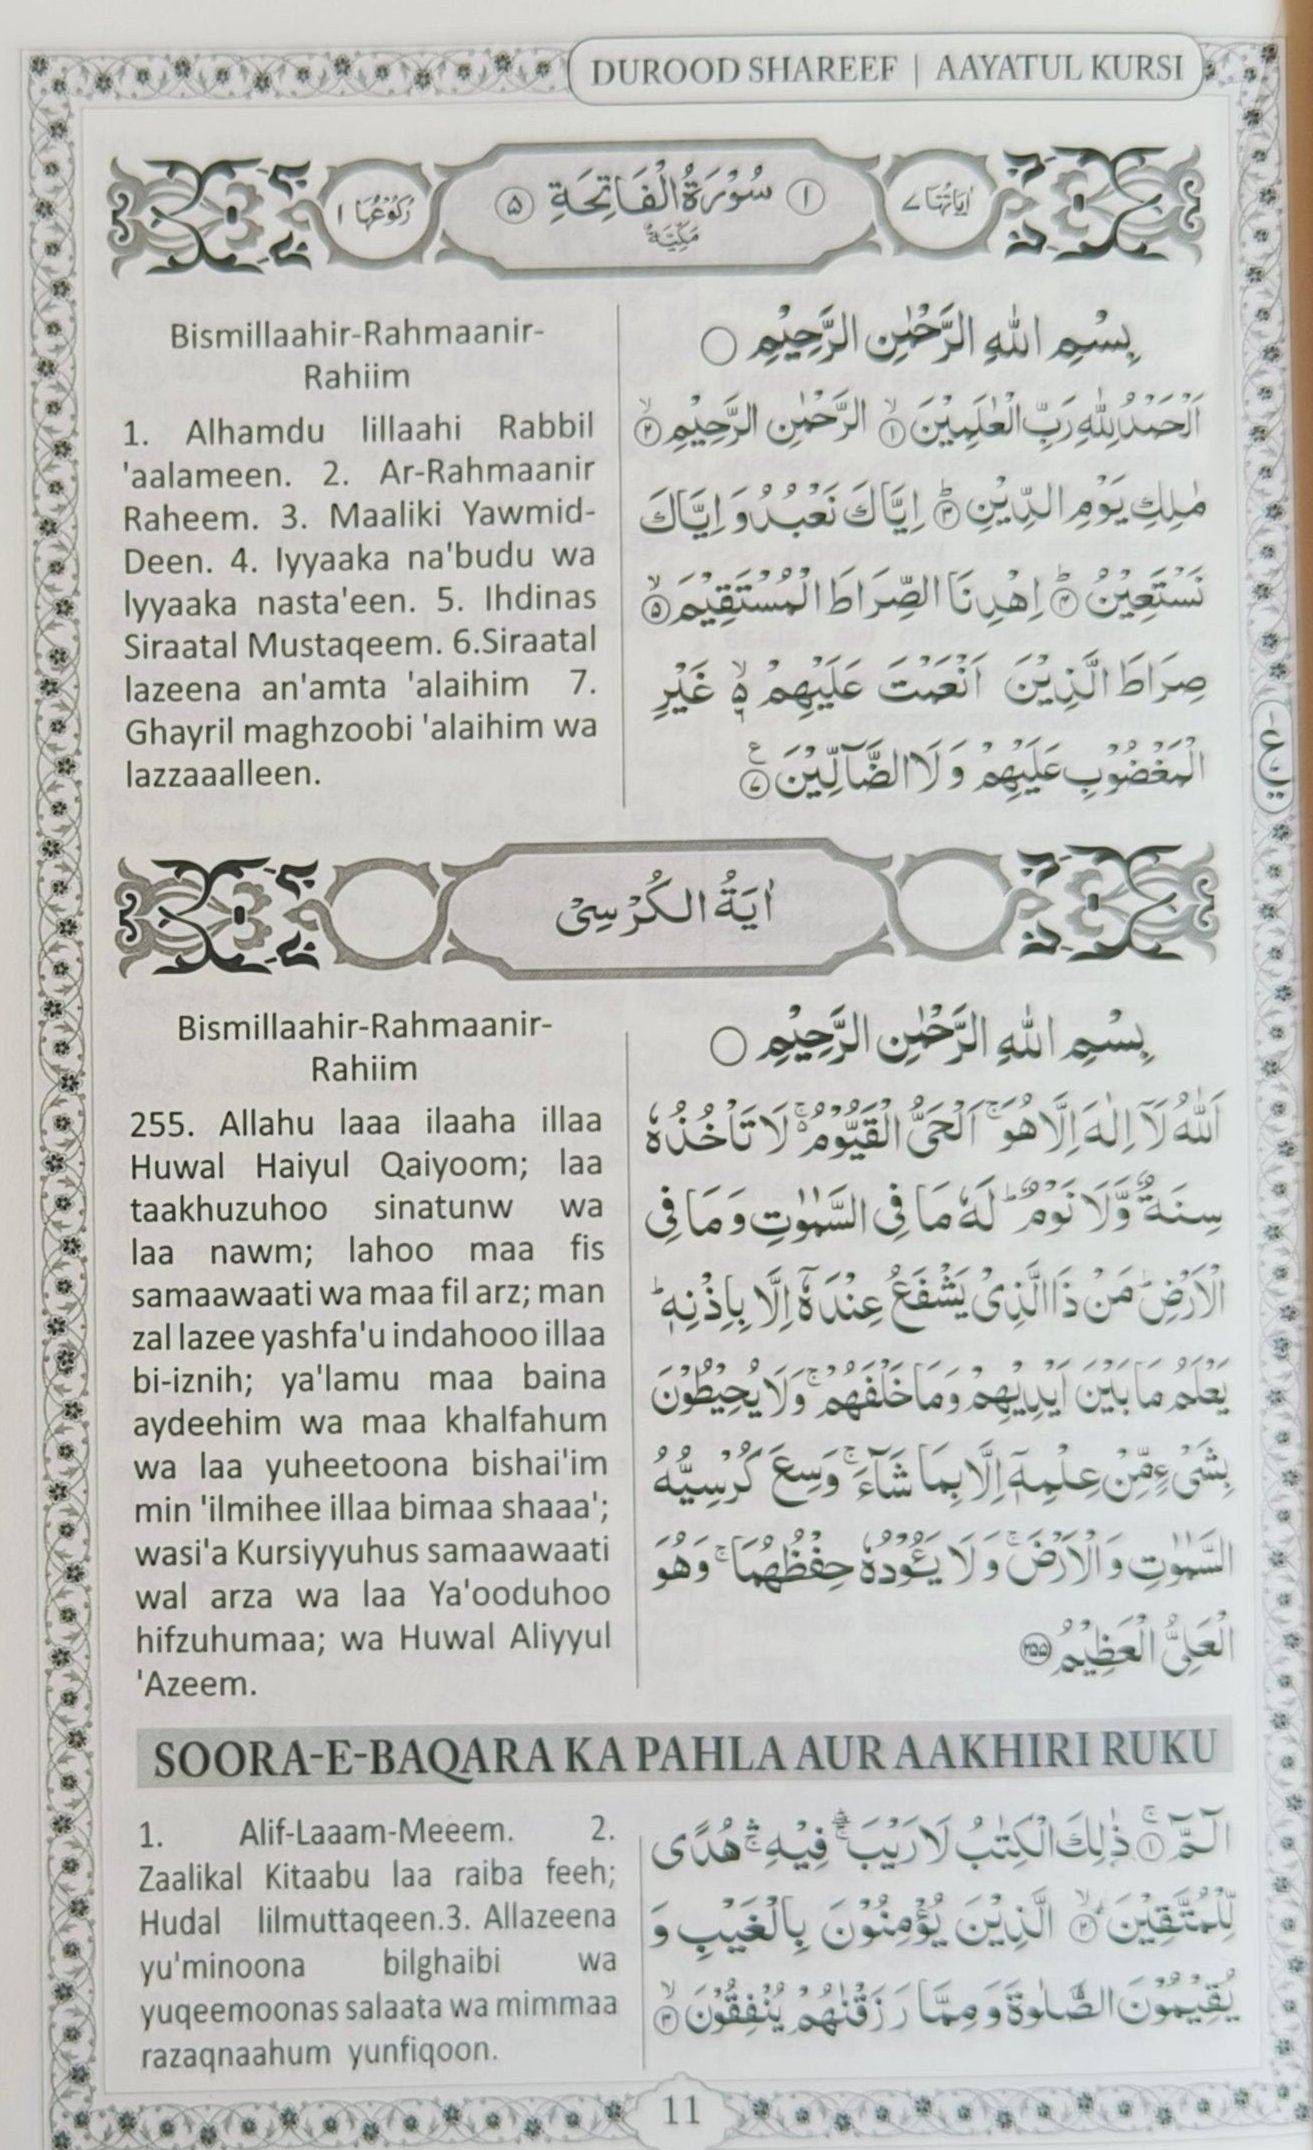 DUROOD SHAREEF | AAYATUL KURSI
اٰيَاتُهَا ٧
١ سُوْرَةُ الْفَاتِحَةِ ٥
مَكِّيَّةٌ
رُكُوْعُهَا ١
Bismillaahir-Rahmaanir-
Rahiim
1. Alhamdu lillaahi Rabbil
'aalameen. 2. Ar-Rahmaanir
Raheem. 3. Maaliki Yawmid-
Deen. 4. Iyyaaka na'budu wa
Iyyaaka nasta'een. 5. Ihdinas
Siraatal Mustaqeem. 6.Siraatal
lazeena an'amta 'alaihim 7.
Ghayril maghzoobi 'alaihim wa
lazzaaalleen.
بِسْمِ اللّٰهِ الرَّحْمٰنِ الرَّحِيْمِ ○
اَلْحَمْدُ لِلّٰهِ رَبِّ الْعٰلَمِيْنَ ۙ﴿١﴾ الرَّحْمٰنِ الرَّحِيْمِ ۙ﴿٢﴾
مٰلِكِ يَوْمِ الدِّيْنِ ؕ﴿٣﴾ اِيَّاكَ نَعْبُدُ وَ اِيَّاكَ
نَسْتَعِيْنُ ؕ﴿٤﴾ اِهْدِنَا الصِّرَاطَ الْمُسْتَقِيْمَ ۙ﴿٥﴾
صِرَاطَ الَّذِيْنَ اَنْعَمْتَ عَلَيْهِمْ ۙ۬ غَيْرِ
الْمَغْضُوْبِ عَلَيْهِمْ وَ لَا الضَّآلِّيْنَ ﴿٧﴾ ع
اٰيَةُ الْكُرْسِيْ
Bismillaahir-Rahmaanir-
Rahiim
255. Allahu laaa ilaaha illaa
Huwal Haiyul Qaiyoom; laa
taakhuzuhoo sinatunw wa
laa nawm; lahoo maa fis
samaawaati wa maa fil arz; man
zal lazee yashfa'u indahooo illaa
bi-iznih; ya'lamu maa baina
aydeehim wa maa khalfahum
wa laa yuheetoona bishai'im
min 'ilmihee illaa bimaa shaaa';
wasi'a Kursiyyuhus samaawaati
wal arza wa laa Ya'ooduhoo
hifzuhumaa; wa Huwal Aliyyul
'Azeem.
بِسْمِ اللّٰهِ الرَّحْمٰنِ الرَّحِيْمِ ○
اَللّٰهُ لَآ اِلٰهَ اِلَّا هُوَ ۚ اَلْحَيُّ الْقَيُّوْمُ ۚ۬ لَا تَاْخُذُهٗ
سِنَةٌ وَّلَا نَوْمٌ ؕ لَهٗ مَا فِي السَّمٰوٰتِ وَ مَا فِي
الْاَرْضِ ؕ مَنْ ذَا الَّذِيْ يَشْفَعُ عِنْدَهٗٓ اِلَّا بِاِذْنِهٖ ؕ
يَعْلَمُ مَا بَيْنَ اَيْدِيْهِمْ وَمَا خَلْفَهُمْ ۚ وَلَا يُحِيْطُوْنَ
بِشَيْءٍ مِّنْ عِلْمِهٖٓ اِلَّا بِمَا شَآءَ ۚ وَسِعَ كُرْسِيُّهُ
السَّمٰوٰتِ وَ الْاَرْضَ ۚ وَ لَا يَـُٔوْدُهٗ حِفْظُهُمَا ۚ وَهُوَ
الْعَلِيُّ الْعَظِيْمُ ﴿٢٥٥﴾
SOORA-E-BAQARA KA PAHLA AUR AAKHIRI RUKU
1. Alif-Laaam-Meeem. 2.
Zaalikal Kitaabu laa raiba feeh;
Hudal lilmuttaqeen.3. Allazeena
yu'minoona bilghaibi wa
yuqeemoonas salaata wa mimmaa
razaqnaahum yunfiqoon.
الٓمّٓ ۚ﴿١﴾ ذٰلِكَ الْكِتٰبُ لَا رَيْبَ ۛۖۚ فِيْهِ ۛۚ هُدًى
لِّلْمُتَّقِيْنَ ۙ﴿٢﴾ الَّذِيْنَ يُؤْمِنُوْنَ بِالْغَيْبِ وَ
يُقِيْمُوْنَ الصَّلٰوةَ وَ مِمَّا رَزَقْنٰهُمْ يُنْفِقُوْنَ ۙ﴿٣﴾
11